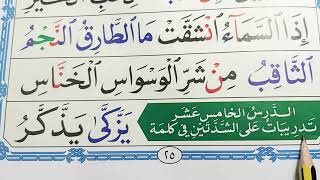 إِذَا السَّمَآءُ انْشَقَّتْ مَا الطَّارِقُ النَّجْمُ
الثَّاقِبُ مِنْ شَرِّ الْوَسْوَاسِ الْخَنَّاسِ
اَلدَّرْسُ الْخَامِسَ عَشَرَ
تَدْرِيبَاتٌ عَلَى الشَّدَّتَيْنِ فِي كَلِمَةٍ
يَزَّكّٰى يَذَّكَّرُ
٢٥